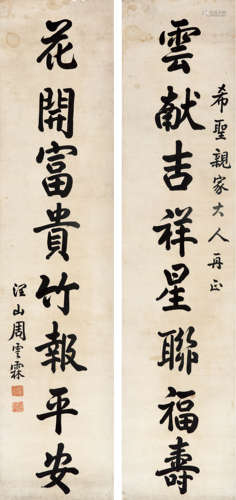 希聖親家大人再正
雲献吉祥星聯福壽
花開富貴竹報平安
澄山周雲霖